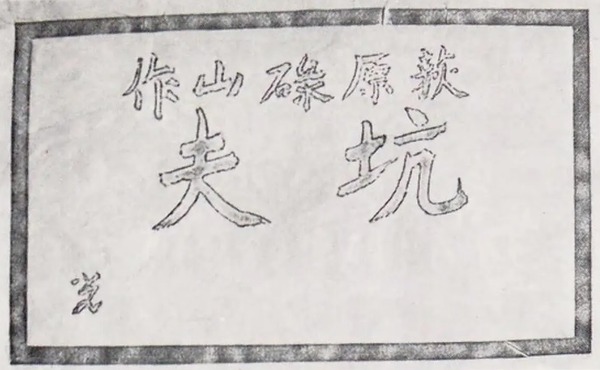 荻原碌山作
坑夫